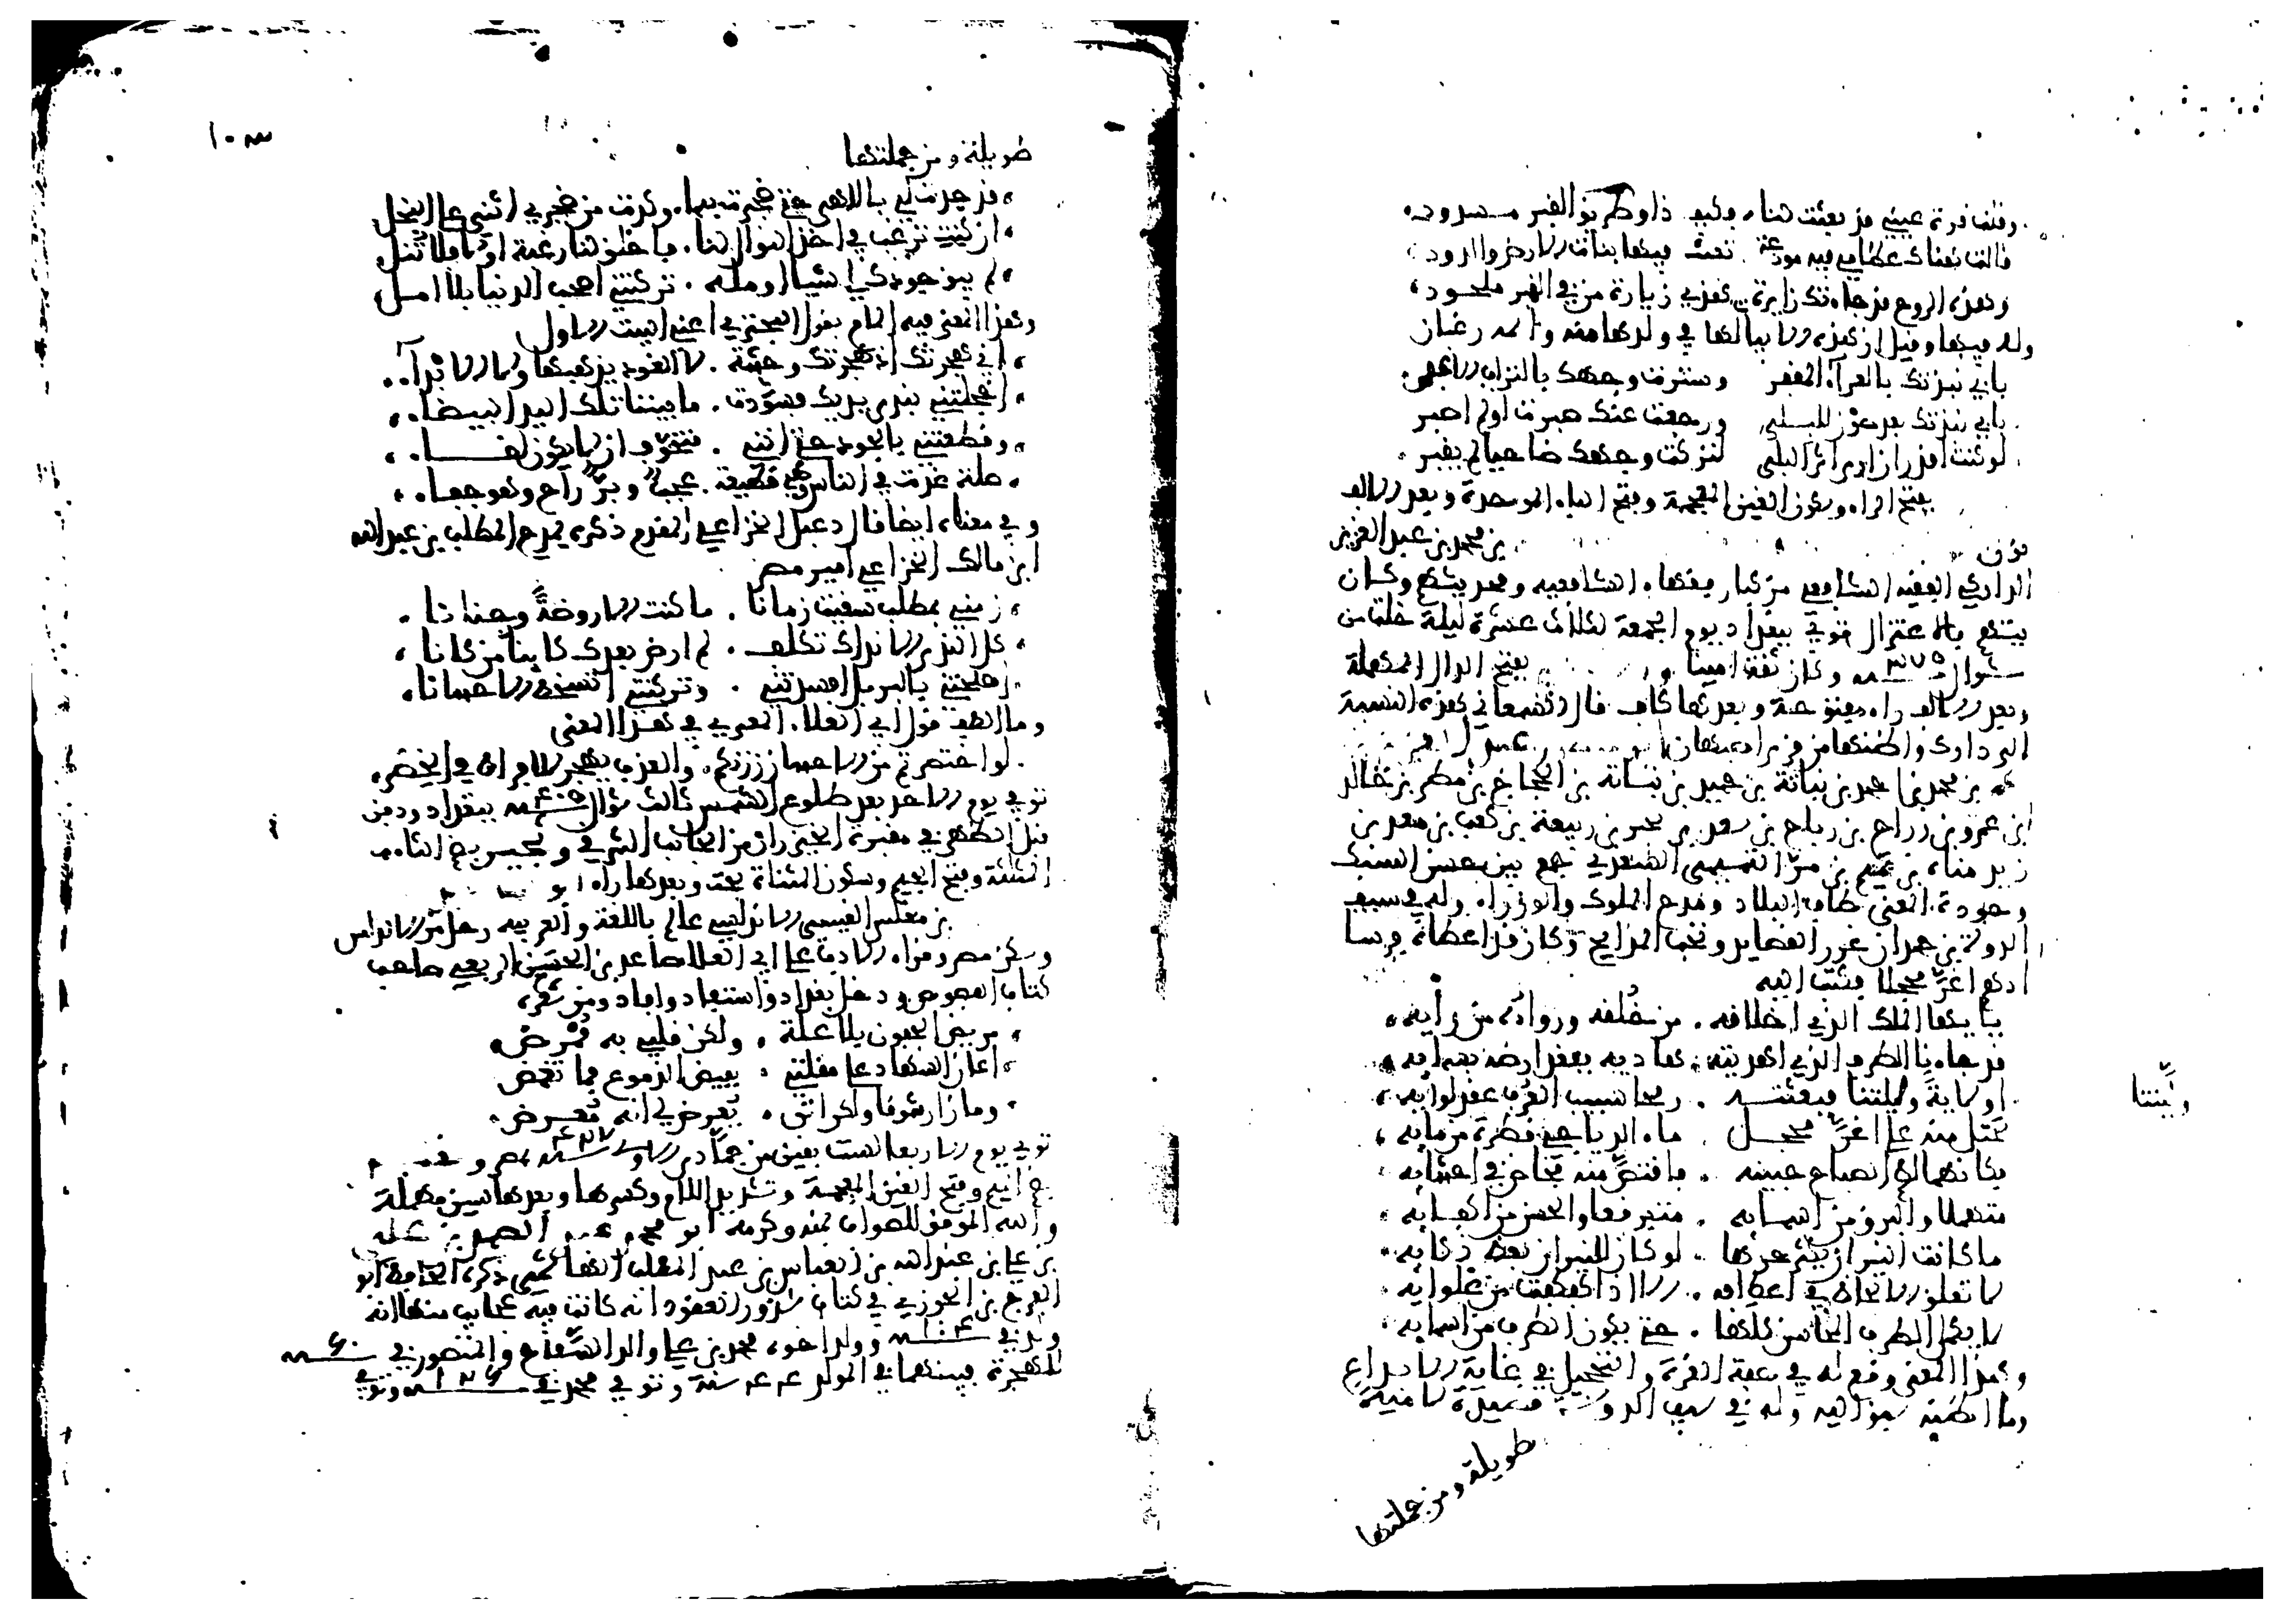 وقلت قرة عيني قد بعثت لنا . وكيف ذا وطريق القبر مسدود .
قالت هناك عظامي فيه مودعة . تعيث فيها بنات الارض والدود .
وهذه الروح قد جاءتك زايرة . هذي زيارة من في القبر ملحود .
وله فيها وقيل ان هذه الابيات لها في ولدها منه والله رغبان
بابي نبذتك بالعراء المقفر وسترت وجهك بالتراب الاعفر .
بابي بذلتك بعد صون للبلى ورجعت عنك صبرت او لم اصبر
لو كنت اقدر ان ارى اثر البلى لتركت وجهك ضاحيا لم يقبر .
بفتح الراء وسكون الغين المعجمة وفتح الباء الموحدة وبعد الالف
نون بن محمد بن عبد العزيز
الداركي الفقيه الشافعي من كبار فقهاء الشافعيه
يتهم بالاعتزال توفي ببغداد يوم الجمعة لثلاث عشرة ليلة خلت من
شوال سنة ٣٧٥ وكان ثقة امينا بفتح الدال المهملة
وبعد الالف راء مفتوحة وبعدها كاف قال السمعاني هذه النسبة
الى دارك واظنها من قرى اصبهان
بن محمد بن احمد بن نباتة بن حميد بن نباتة بن الحجاج بن مطر بن خالد
بن عمرو بن رزاح بن رياح بن سعد بن بحير بن ربيعة بن كعب بن سعد بن
زيد مناه بن تميم بن مر التميمي السعدي جمع بين حسن السبك
وجودة المعنى طاف البلاد ومدح الملوك والوزراء وله في سيف
الدولة بن حمدان غرر القصايد ونخب المدايح وكان قد اعطاه فرسا
ادهم اغر محجلا فكتب اليه
يا ايها الملك الذي اخلاقه . من خُلقه ورواؤه من رأيه .
قد جاءنا الطرف الذي اهديته . هاديه يعقد ارضه بسمايه .
اولايةً وليتنا فبعثته . رمحا سبيب العرف عقد لوايه .
وليتنا
نختل منه على اغر محجل . ماء الدياجي قطرة من مايه .
فكانما لطم الصباح جبينه . فاقتص منه فخاض في احشايه
متمهلا والبرق من اسمايه . متبرقعا والحسن من اكفايه .
ما كانت النيران يكمن حرها . لو كان للنيران بعض ذكايه .
لا تعلق الالحاظ في اعطافه . الا اذا كفكفت من غلوايه
لا يكمل الطرف المحاسن كلها . حتى يكون الطرف من اسرايه .
وهذا المعنى وقع له في صفة الغرة والتحجيل في غاية الابداع
وما اظنه سبق اليه وله في سيف الدولة قصيدة لامية
طويلة ومن جملتها
١٠٣
طويلة ومن جملتها
. قد جدت لي باللهى حتى ضجرت بها . وكدت من ضجري اثني على البخل
. ان كنت ترغب في اخذ النوال لنا . فاخلق لنا رغبة او لا فلا تُنل
. لم يبق جودك لي شيئا اومله . تركتني اصحب الدنيا بلا امل
وهذا المعنى فيه المام بقول البحتري اعني البيت الاول
. اني هجرتك اذ هجرتك وحشة . لا العود يذهبها ولا الابداء .
. اخجلتني بندى يديك فسودت . ما بيننا تلك اليد البيضاء .
. وقطعتني بالجود حتى انني . متخوف ان لا يكون لقاء .
. صلة غدت في الناس وهي قطيعة . عجب وبر راح وهو جفاء .
وفي معناه ايضا قال دعبل الخزاعي المقدم ذكره يمدح المطلب بن عبد الله
ابن مالك الخزاعي امير مصر
. زمني بمطلب سقيت زمانا . ما كنت الا روضةً وجنانا .
. كل الندى الا نداك تكلف . لم ارض بعدك كاينا من كانا .
. اصلحتني بالبر بل افسدتني . وتركتني اتسخط الاحسانا .
وما الطف قول ابي العلاء المعري في هذا المعنى
. لو اختصرتم من الاحسان زرتكم . والعذب يهجر للافراط في الخصر .
توفي يوم الاحد بعد طلوع الشمس ثالث شوال سنة ٤٠٥ ببغداد ودفن
قبل الظهر في مقبرة الخيزران من الجانب الشرقي
المثلثة وفتح الجيم وسكون المثناة تحت وبعدها راء ابو
بن مغلس القيسي الاندلسي عالم باللغة والعربيه رحل من الاندلس
وسكن مصر وقراء الادب على ابي العلا صاعد بن الحسين الربعي صاحب
كتاب الفصوص ودخل بغداد واستفاد وافاد ومن شعره
. مريض الجفون بلا علة . ولكن قلبي به مُمرَض .
. اعان السهاد على مقلتي . بفيض الدموع فما تغمض
. وما زار شوقا ولكن اتى . يُعرض لي انه مُعرض .
توفي يوم الاربعا لست بقين من جمادى الاولى سنة ٤٢٧ بمصر و
بضم الميم وفتح الغين المعجمة وتشديد اللام وكسرها وبعدها سين مهملة
والله الموفق للصواب بمنه وكرمه ابو محمد عبد الصمد بن علي
بن علي بن عبد الله بن العباس بن عبد المطلب الهاشمي ذكره الحافظ ابو
الفرج بن الجوزي في كتاب شذور العقود انه كانت فيه عجايب منها انه
ولد في سنة ١٠٤ وولد اخوه محمد بن علي والد السفاح والمنصور في سنة ٦٠
للهجرة فبينهما في المولد ٤٤ سنة وتوفي محمد في سنة ١٢٦ وتوفي